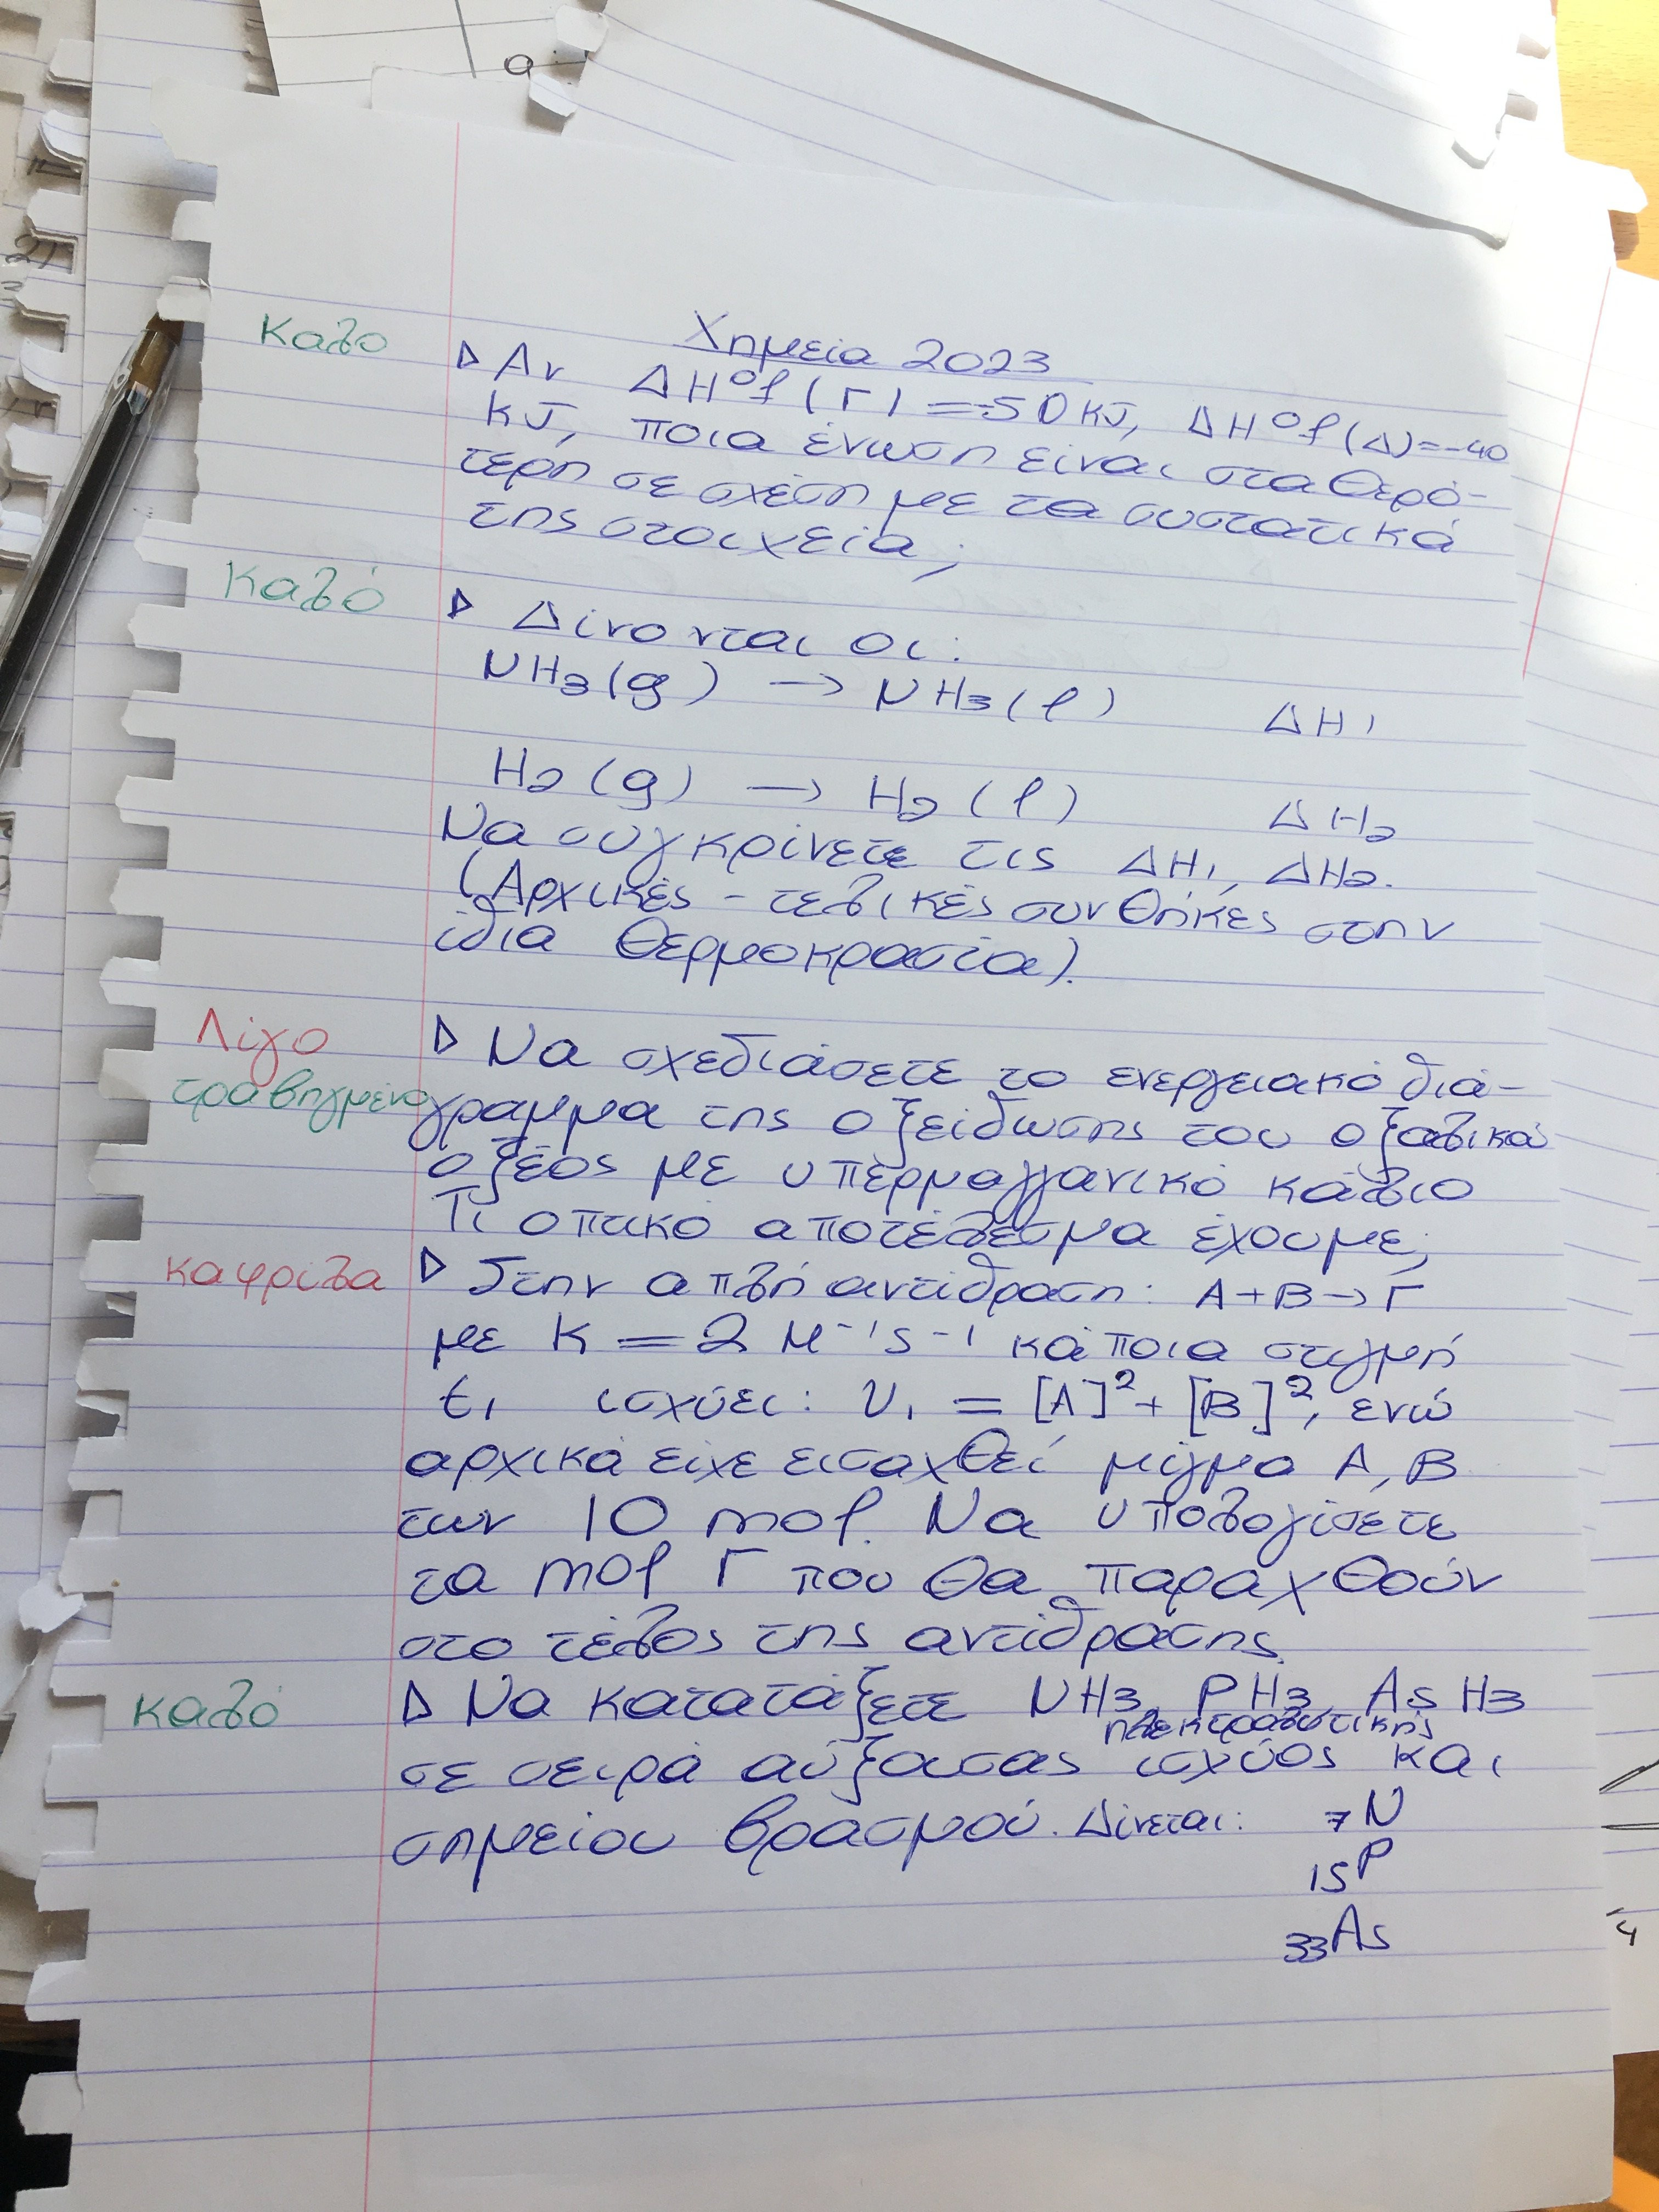 Χημεία 2023
Καλο
▷ Αν ΔH⁰f (Γ) = -50 KJ, ΔH⁰f (Δ) = -40
KJ, ποια ένωση είναι σταθερό-
τερη σε σχέση με τα συστατικά
της στοιχεία;
Καλό
▷ Δίνονται οι:
NH3(g) → NH3(l) ΔH1
H2(g) → H2(l) ΔH2
Να συγκρίνετε τις ΔH1, ΔH2.
(Αρχικές - τελικές συνθήκες στην
ίδια θερμοκρασία).
Λίγο
τραβηγμένο
▷ Να σχεδιάσετε το ενεργειακό διά-
γραμμα της οξείδωσης του οξαλικού
οξέος με υπερμαγγανικό κάλιο
Τι οπτικό αποτέλεσμα έχουμε;
καφρίλα
▷ Στην απλή αντίδραση: A + B → Γ
με K = 2 M⁻¹s⁻¹ κάποια στιγμή
t1 ισχύει: υ1 = [A]² + [B]², ενώ
αρχικά είχε εισαχθεί μίγμα A, B
των 10 mol. Να υπολογίσετε
τα mol Γ που θα παραχθούν
στο τέλος της αντίδρασης.
καλό
▷ Να κατατάξετε NH3, PH3, AsH3
ηλεκτρολυτικής
σε σειρά αύξουσας ισχύος και
σημείου βρασμού. Δίνεται: 7N
15P
33As